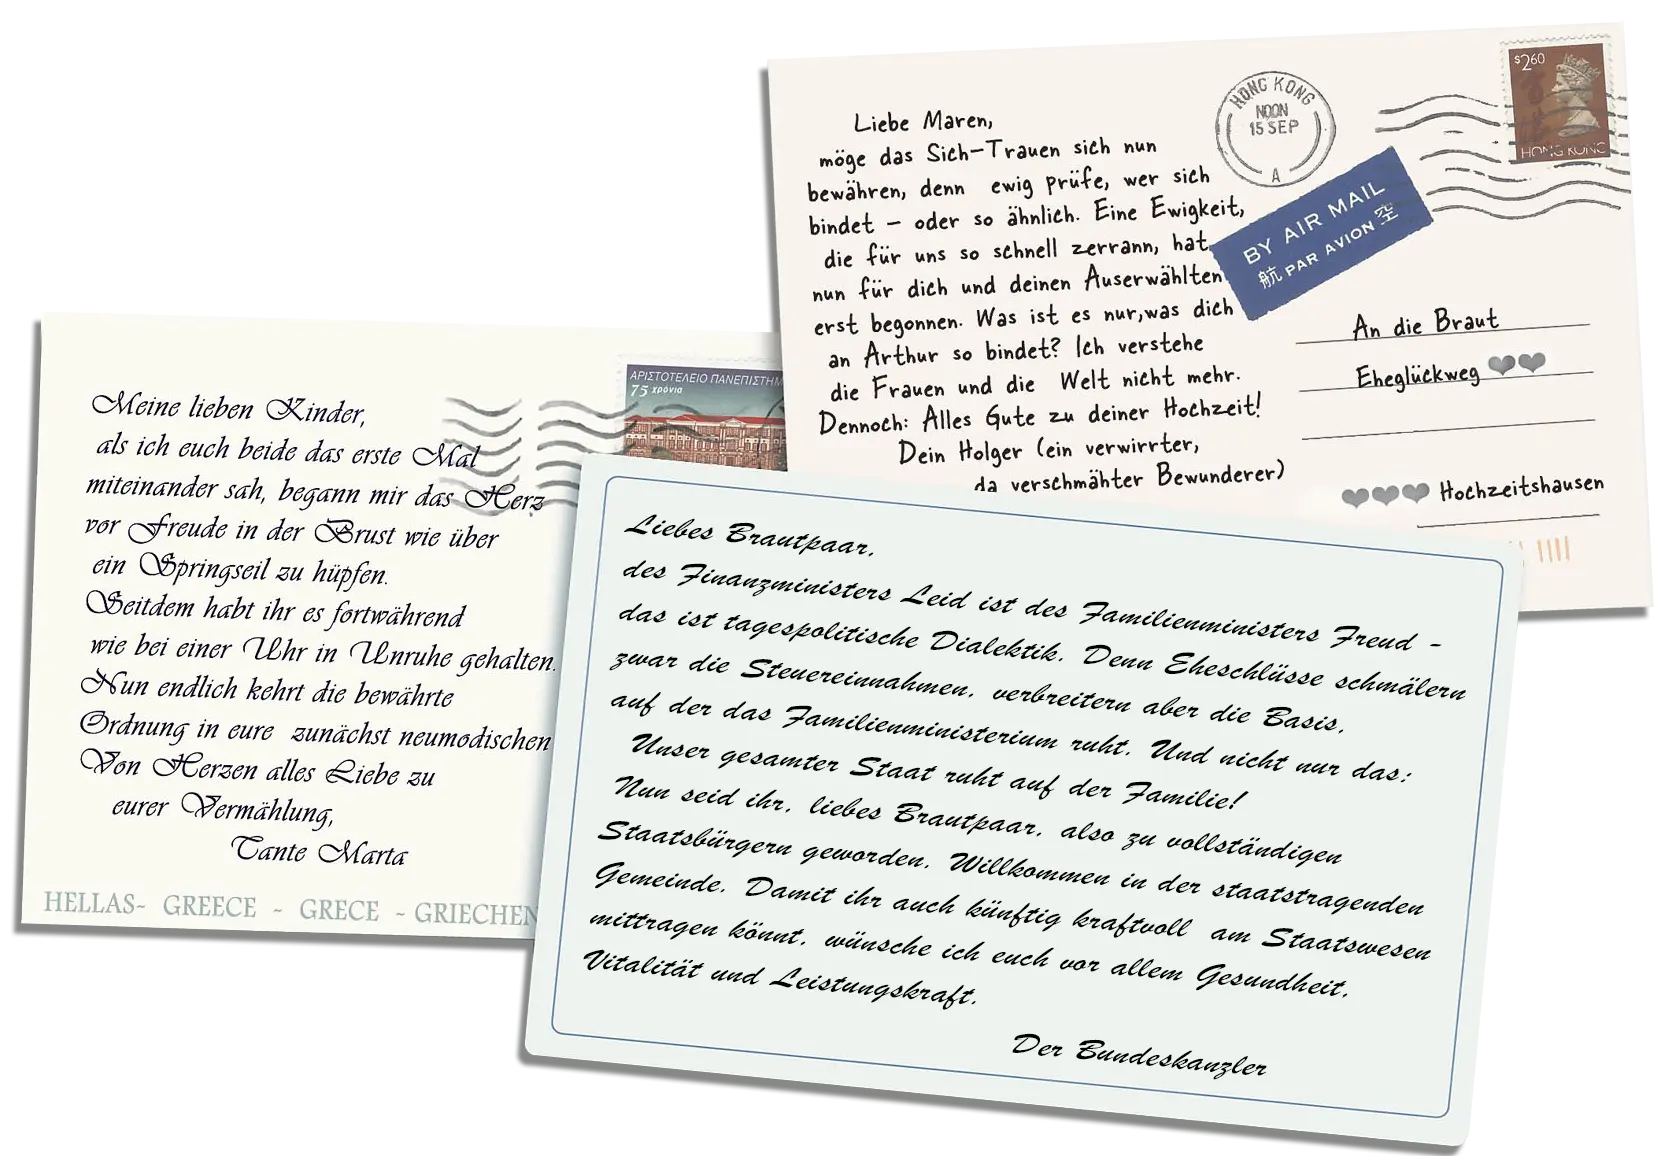 Meine lieben Kinder,
als ich euch beide das erste Mal
miteinander sah, begann mir das Herz
vor Freude in der Brust wie über
ein Springseil zu hüpfen.
Seitdem habt ihr es fortwährend
wie bei einer Uhr in Unruhe gehalten.
Nun endlich kehrt die bewährte
Ordnung in eure zunächst neumodischen
Von Herzen alles Liebe zu
eurer Vermählung,
Tante Marta
HELLAS- GREECE - GRECE - GRIECHEN
ΑΡΙΣΤΟΤΕΛΕΙΟ ΠΑΝΕΠΙΣΤΗΜ
75 χρόνια
Liebe Maren,
möge das Sich-Trauen sich nun
bewähren, denn ewig prüfe, wer sich
bindet - oder so ähnlich. Eine Ewigkeit,
die für uns so schnell zerrann, hat
nun für dich und deinen Auserwählten
erst begonnen. Was ist es nur,was dich
an Arthur so bindet? Ich verstehe
die Frauen und die Welt nicht mehr.
Dennoch: Alles Gute zu deiner Hochzeit!
Dein Holger (ein verwirrter,
da verschmähter Bewunderer)
HONG KONG
NOON
15 SEP
A
$2.60
HONG KONG
BY AIR MAIL
航 PAR AVION 空
An die Braut
Eheglückweg
Hochzeitshausen
Liebes Brautpaar,
des Finanzministers Leid ist des Familienministers Freud -
das ist tagespolitische Dialektik. Denn Eheschlüsse schmälern
zwar die Steuereinnahmen, verbreitern aber die Basis,
auf der das Familienministerium ruht. Und nicht nur das:
Unser gesamter Staat ruht auf der Familie!
Nun seid ihr, liebes Brautpaar, also zu vollständigen
Staatsbürgern geworden. Willkommen in der staatstragenden
Gemeinde. Damit ihr auch künftig kraftvoll am Staatswesen
mittragen könnt, wünsche ich euch vor allem Gesundheit,
Vitalität und Leistungskraft.
Der Bundeskanzler